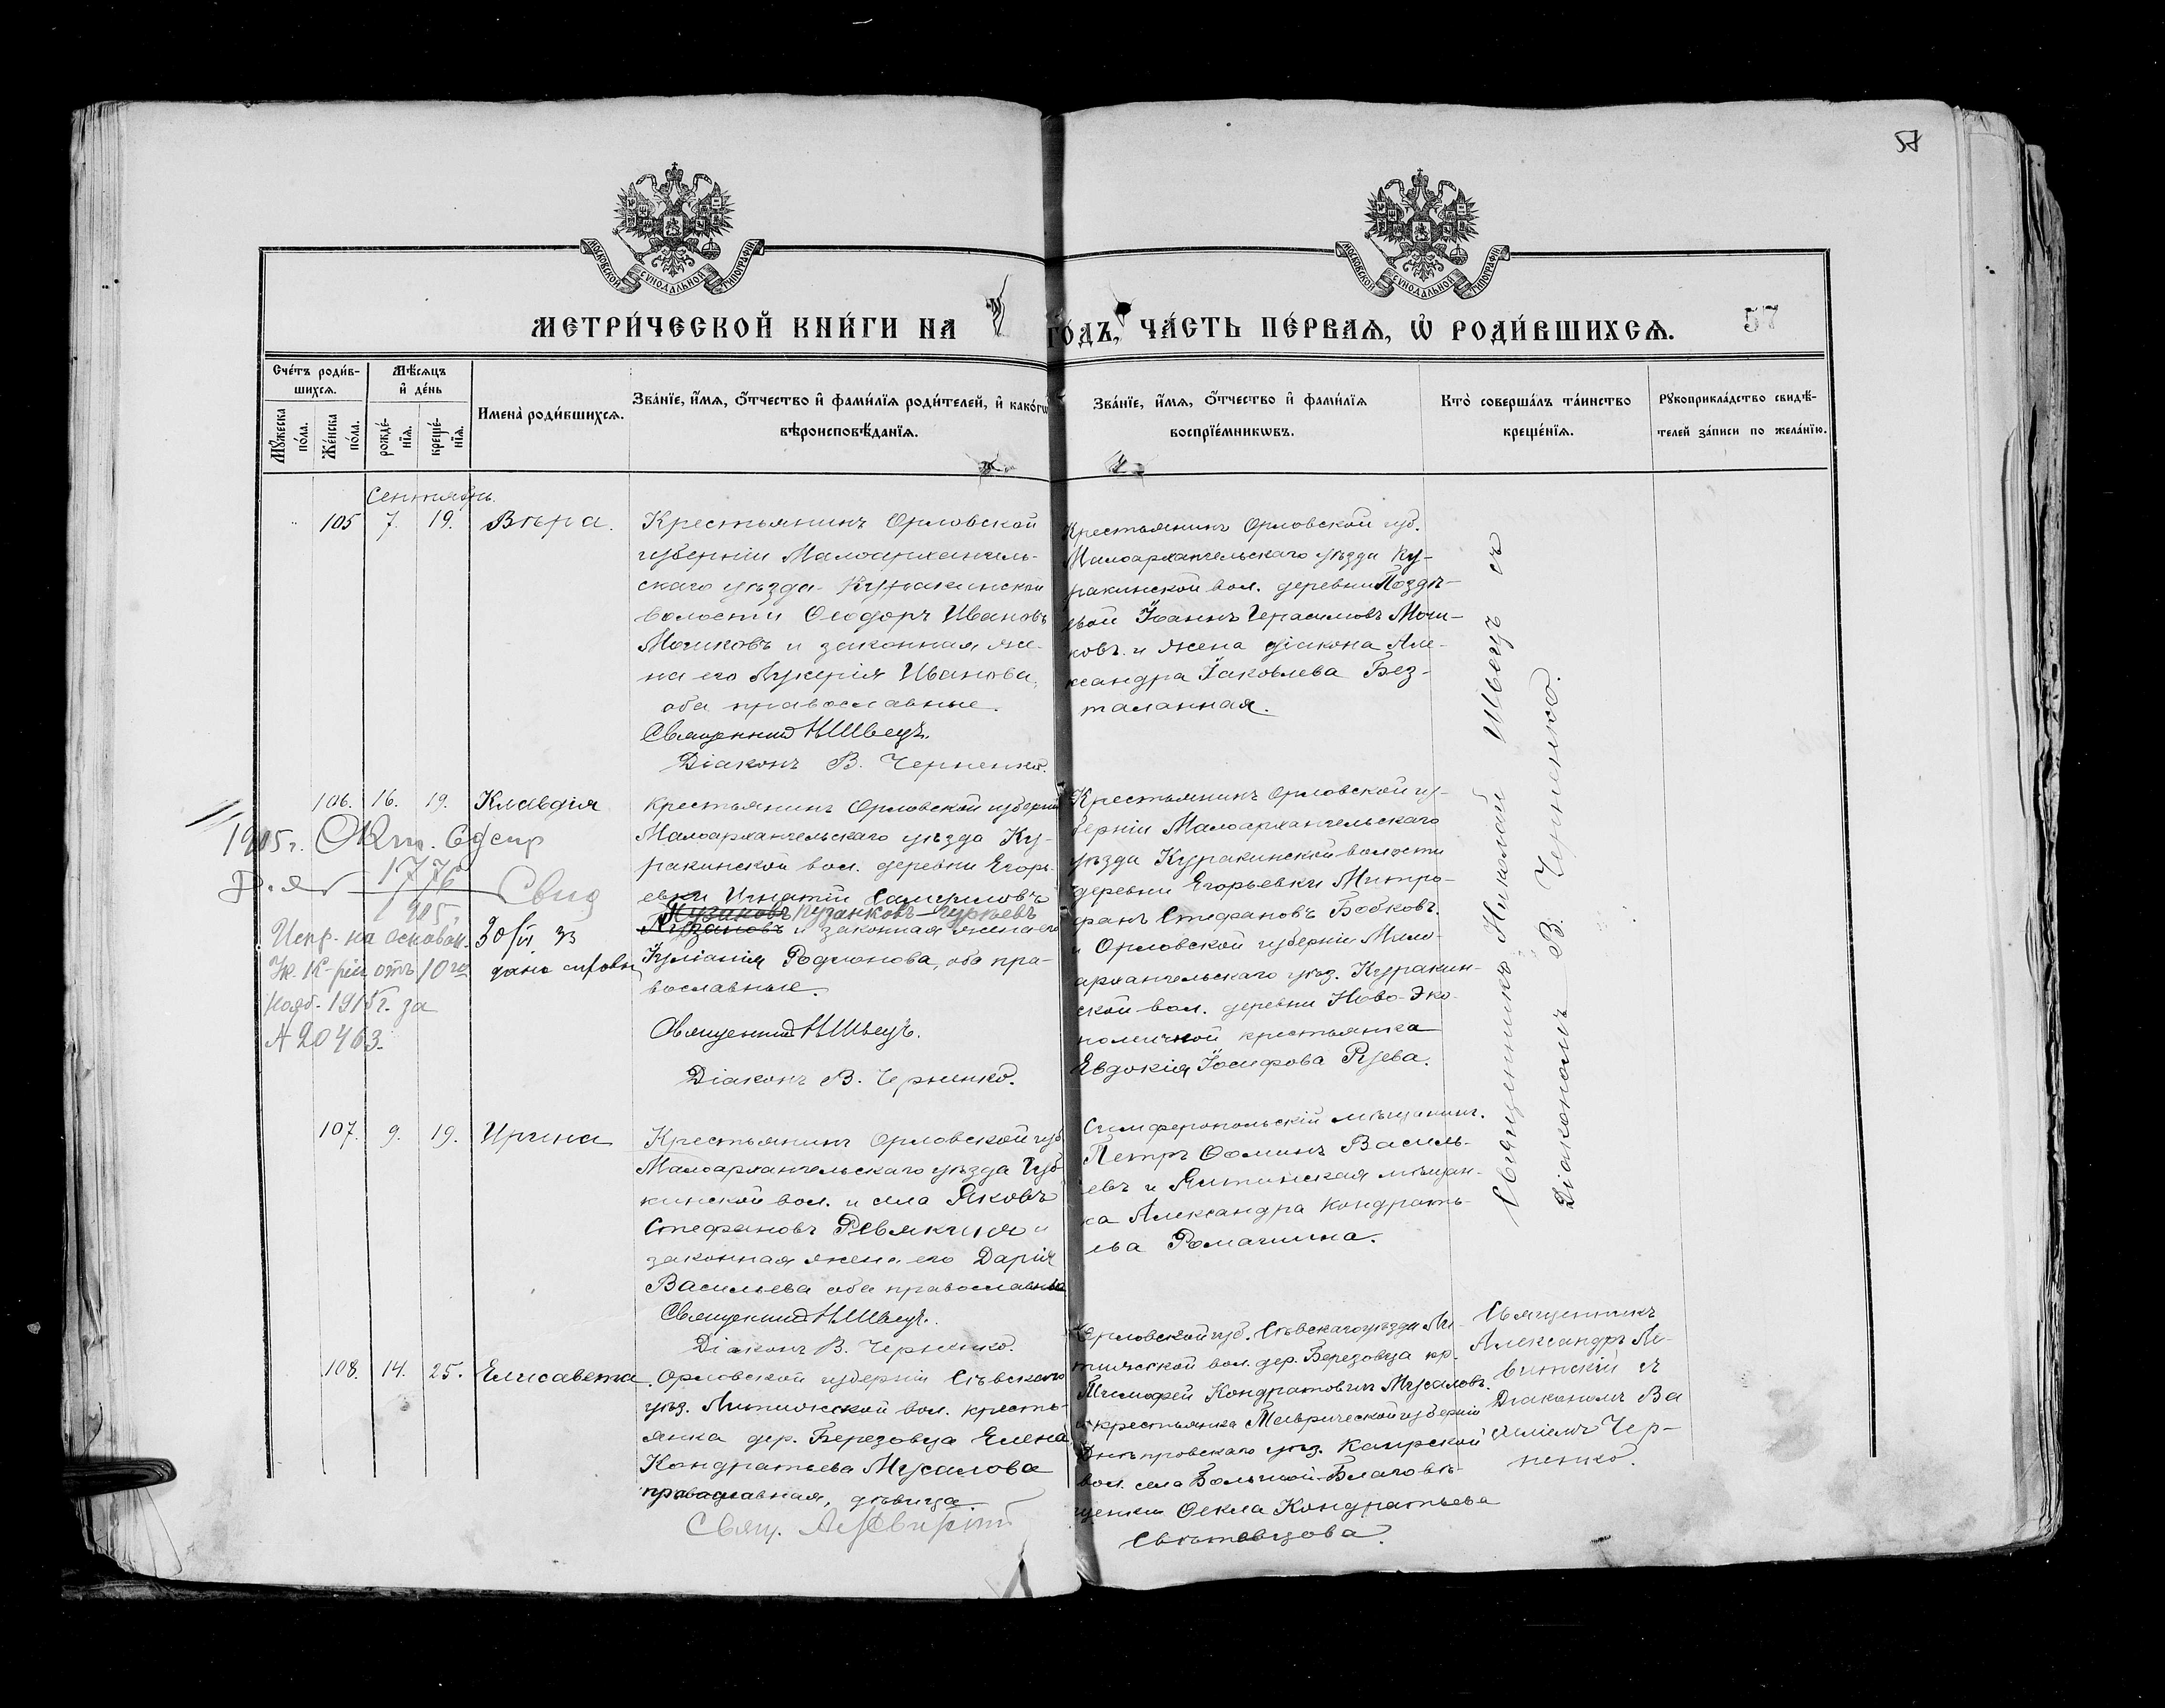 57
МОСКОВСКОЙ СѴНОДАЛЬНОЙ ТИПОГРАФІИ
МОСКОВСКОЙ СѴНОДАЛЬНОЙ ТИПОГРАФІИ
МЕТРИ́ЧЕСКОЙ КНИ́ГИ НА ГО́ДЪ, ЧА́СТЬ ПЕ́РВАѦ, Ѡ҆ РОДИ́ВШИХСѦ.
57
Сче́тъ роди́в-
шихсѧ.
Мꙋ́жеска
по́ла.
Же́нска
по́ла.
Мѣ́сѧцъ
и҆ де́нь
рожде́-
нїѧ.
креще́-
нїѧ.
Имена̀ роди́вшихсѧ.
Зва́нїе, и҆́мѧ, ѻ҆́тчество и҆ фами́лїѧ роди́телей, и҆ како́гѡ
вѣроисповѣ́данїѧ.
Зва́нїе, и҆́мѧ, ѻ҆́тчество и҆ фами́лїѧ
воспрїе́мникѡвъ.
Кто̀ соверша́лъ та́инство
креще́нїѧ.
Рꙋкоприкла́дство свидѣ́-
телей за́писи по жела́нїю.
Сентябрь.
105 7. 19. Вѣра.
Крестьянинъ Орловской
губерніи Малоархангель-
скаго уѣзда Куракинской
волости Ѳеодоръ Ивановъ
Мошковъ и законная же-
на его Лукерія Иванова,
оба православные.
Священникъ Н Швецъ.
Діаконъ В. Черненко.
Крестьянинъ Орловской губ.
Малоархангельскаго уѣзда Ку-
ракинской вол. деревни Поздѣ-
евой Іоаннъ Герасимовъ Мош-
ковъ и жена діакона Але-
ксандра Іаковлева Без-
таланная.
Священникъ Николай Швецъ съ
Діакономъ В. Черненко.
106. 16. 19. Клавдія
1905г.
1776
905
Свид
Испр. на основан.
Ук. К-ріи отъ 10го
Нояб. 1915г. за
№ 20463.
Крестьянинъ Орловской губерніи
Малоархангельскаго уѣзда Ку-
ракинской вол. деревни Егорь-
евки Игнатій
Кузанковъ-Гурьевъ
и законная жена его
Іуліанія Родіонова, оба пра-
вославные.
Священникъ Н Швецъ.
Діаконъ В. Черненко.
Крестьянинъ Орловской гу-
берніи Малоархангельскаго
уѣзда Куракинской волости
деревни Егорьевки Митро-
фанъ Стефановъ Бобковъ.
и Орловской губерніи Мало-
архангельскаго уѣз. Куракин-
ской вол. деревни Ново-Эко-
номичной крестьянка
Евдокія Іосифова Рѣева.
107. 9. 19. Ирина
Крестьянинъ Орловской губ.
Малоархангельскаго уѣзда Губ
кинской вол. и села Яковъ
Стефановъ Ревякинъ и
законная жена его Дарія
Васильева оба православные
Священникъ Н Швецъ.
Діаконъ В. Черненко.
Симферопольскій мѣщанинъ.
Петръ Ѳоминъ Василь-
евъ и Ялтинская мѣщан-
ка Александра Кондрать-
ева Ромашина.
108. 14. 25. Елисавета.
Орловской губерніи Сѣвскаго
уѣз. Литижской вол. кресть-
янка дер. Березовца Елена
Кондратьева Мусалова
православная, дѣвица.
Орловской губ. Сѣвскаго уѣзда Ли-
тижской вол. дер. Березовца кр.
Тимофей Кондратовичъ Мусаловъ.
и крестьянка Таврической губерніи
Днѣпровскаго уѣз. Каирской
вол. села Большой-Благовѣ-
щенки Ѳекла Кондратьева
Священникъ
Александръ Ле-
витскій съ
Діакономъ Ва
силіемъ Чер-
ненко.